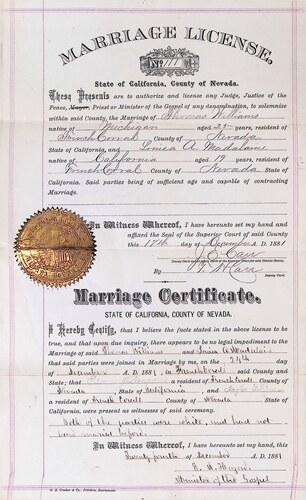 MARRIAGE LICENSE,
No. 111
State of California, County of Nevada.
These Presents are to authorize and license any Judge, Justice of the
Peace, Mayor, Priest or Minister of the Gospel of any denomination, to solemnize
within said County, the Marriage of Thomas Williams
native of Michigan aged 25 years, resident of
French Corral County of Nevada
State of California, and Louisa A. Madalane
native of California aged 19 years, resident of
French Corral County of Nevada State of
California. Said parties being of sufficient age and capable of contracting
Marriage.
In Witness Whereof, I have hereunto set my hand and
affixed the Seal of the Superior Court of said County
this 17th day of December A.D. 1881
J. E. Carr
By
Marriage Certificate.
STATE OF CALIFORNIA, COUNTY OF NEVADA.
I Hereby Certify, that I believe the facts stated in the above license to be
true, and that upon due inquiry, there appears to be no legal impediment to the
Marriage of said Thomas Williams and Louisa A Madalane
that said parties were joined in Marriage by me, on the 24th day
of December A. D. 1881, in French Corral said County and
State; that a resident of French Corral County of
Nevada State of California, and
a resident of French Corral County of Nevada State of
California, were present as witnesses of said ceremony.
Both of the parties were white, and had not
been married before.
In Witness Whereof, I have hereunto set my hand, this
Twenty fourth of December A. D. 1881
Minister of the Gospel